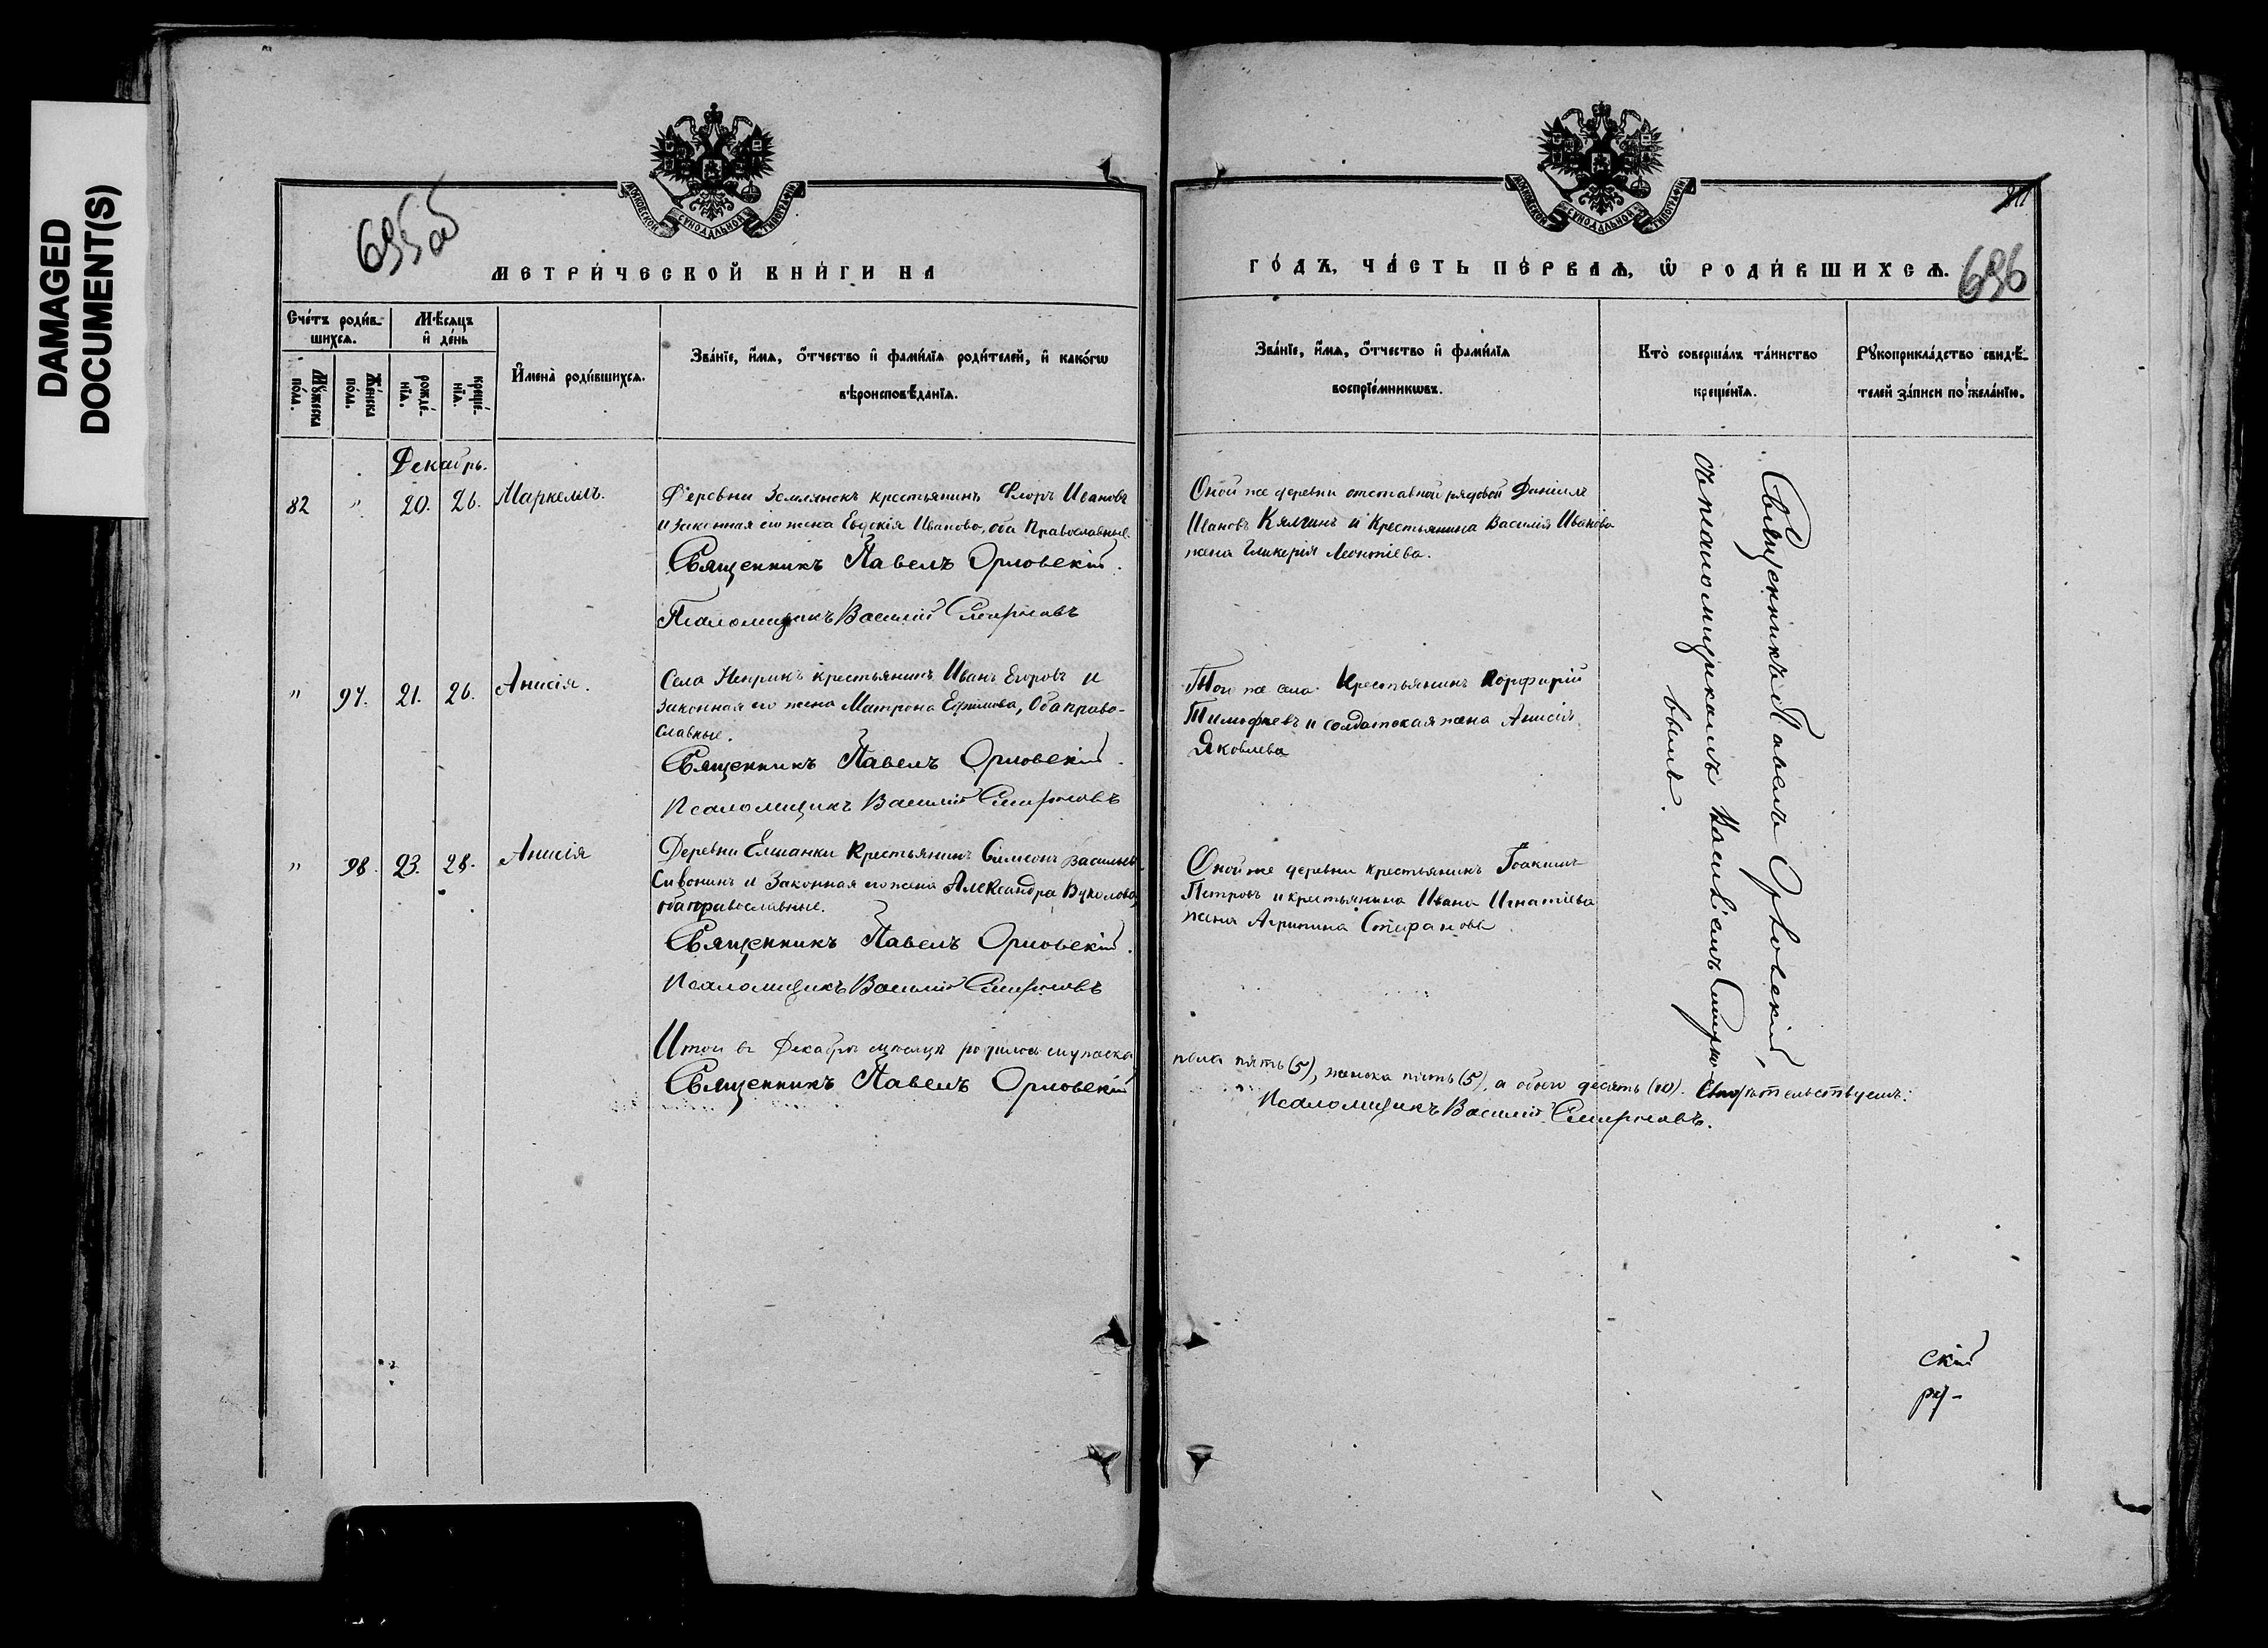 DAMAGED
DOCUMENT(S)
МОСКОВСКОЙ СѴНОДАЛЬНОЙ ТИПОГРАФІИ
695об
МЕТРИ́ЧЕСКОЙ КНИ́ГИ НА
Сче́тъ роди́в-
шихсѧ.
Мѣ́сѧцъ
и҆ де́нь
Мꙋ́жеска
по́ла.
Же́нска
по́ла.
рожде́-
нїѧ.
креще́-
нїѧ.
И҆мена̀ роди́вшихсѧ.
Зва́нїе, и҆́мѧ, ѻ҆́тчество и҆ фами́лїѧ роди́телей, и҆ како́гѡ
вѣроисповѣ́данїѧ.
Декабрь.
82 " 20. 26. Маркеллъ.
Деревни Землянокъ крестьянинъ Флоръ Ивановъ
и законная его жена Евдокія Иванова, оба Православные.
Священникъ Павелъ Орловскій.
Псаломщикъ Василій Смирновъ
" 97. 21. 26. Анисія.
Села Неприкъ крестьянинъ Иванъ Егоровъ и
законная его жена Матрона Ефимова, Оба право-
славные.
Священникъ Павелъ Орловскій.
Псаломщикъ Василій Смирновъ
" 98. 23. 28. Анисія
Деревни Елшанки Крестьянинъ Симеонъ Васильевъ
и Законная его жена Александра Вуколова,
оба православные.
Священникъ Павелъ Орловскій.
Псаломщикъ Василій Смирновъ
Итого въ Декабрѣ мѣсяцѣ родилось мужеска
Священникъ Павелъ Орловскій
МОСКОВСКОЙ СѴНОДАЛЬНОЙ ТИПОГРАФІИ
ГО́ДЪ, ЧА́СТЬ ПЕ́РВАѦ, Ѡ҆ РОДИ́ВШИХСѦ.
696
Зва́нїе, и҆́мѧ, ѻ҆́тчество и҆ фами́лїѧ
воспрїе́мникѡвъ.
Кто̀ соверша́лъ та́инство
креще́нїѧ.
Рꙋкоприкла́дство свидѣ́-
телей за́писи по жела́нїю.
Оной же деревни отставной рядовой Даніилъ
Ивановъ Кялгинъ и Крестьянина Василія Иванова
жена Гликерія Леонтіева.
Того же села Крестьянинъ Порфирій
Тимофеевъ и солдатская жена Анисія
Яковлева
Оной же деревни крестьянинъ Іоакимъ
Петровъ и крестьянина Ивана Игнатіева
жена Агрипина Стефанова
Священникъ Павелъ Орловскій,
съ псаломщикомъ Василіемъ Смирно-
вымъ.
пола пять (5), женска пять (5), а обоего десять (10). Свидѣтельствуемъ:
Псаломщикъ Василій Смирновъ.
скій
ру-